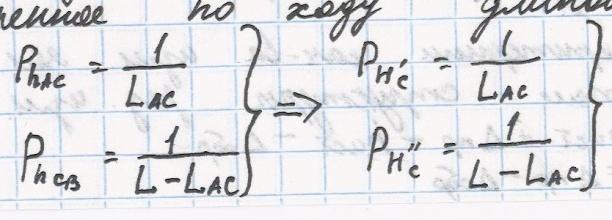 ченное по ходу длиной
P_{h_{AC}} = \frac{1}{L_{AC}} } => P_{H'_C} = \frac{1}{L_{AC}} }
P_{h_{CB}} = \frac{1}{L - L_{AC}} } P_{H''_C} = \frac{1}{L - L_{AC}} }